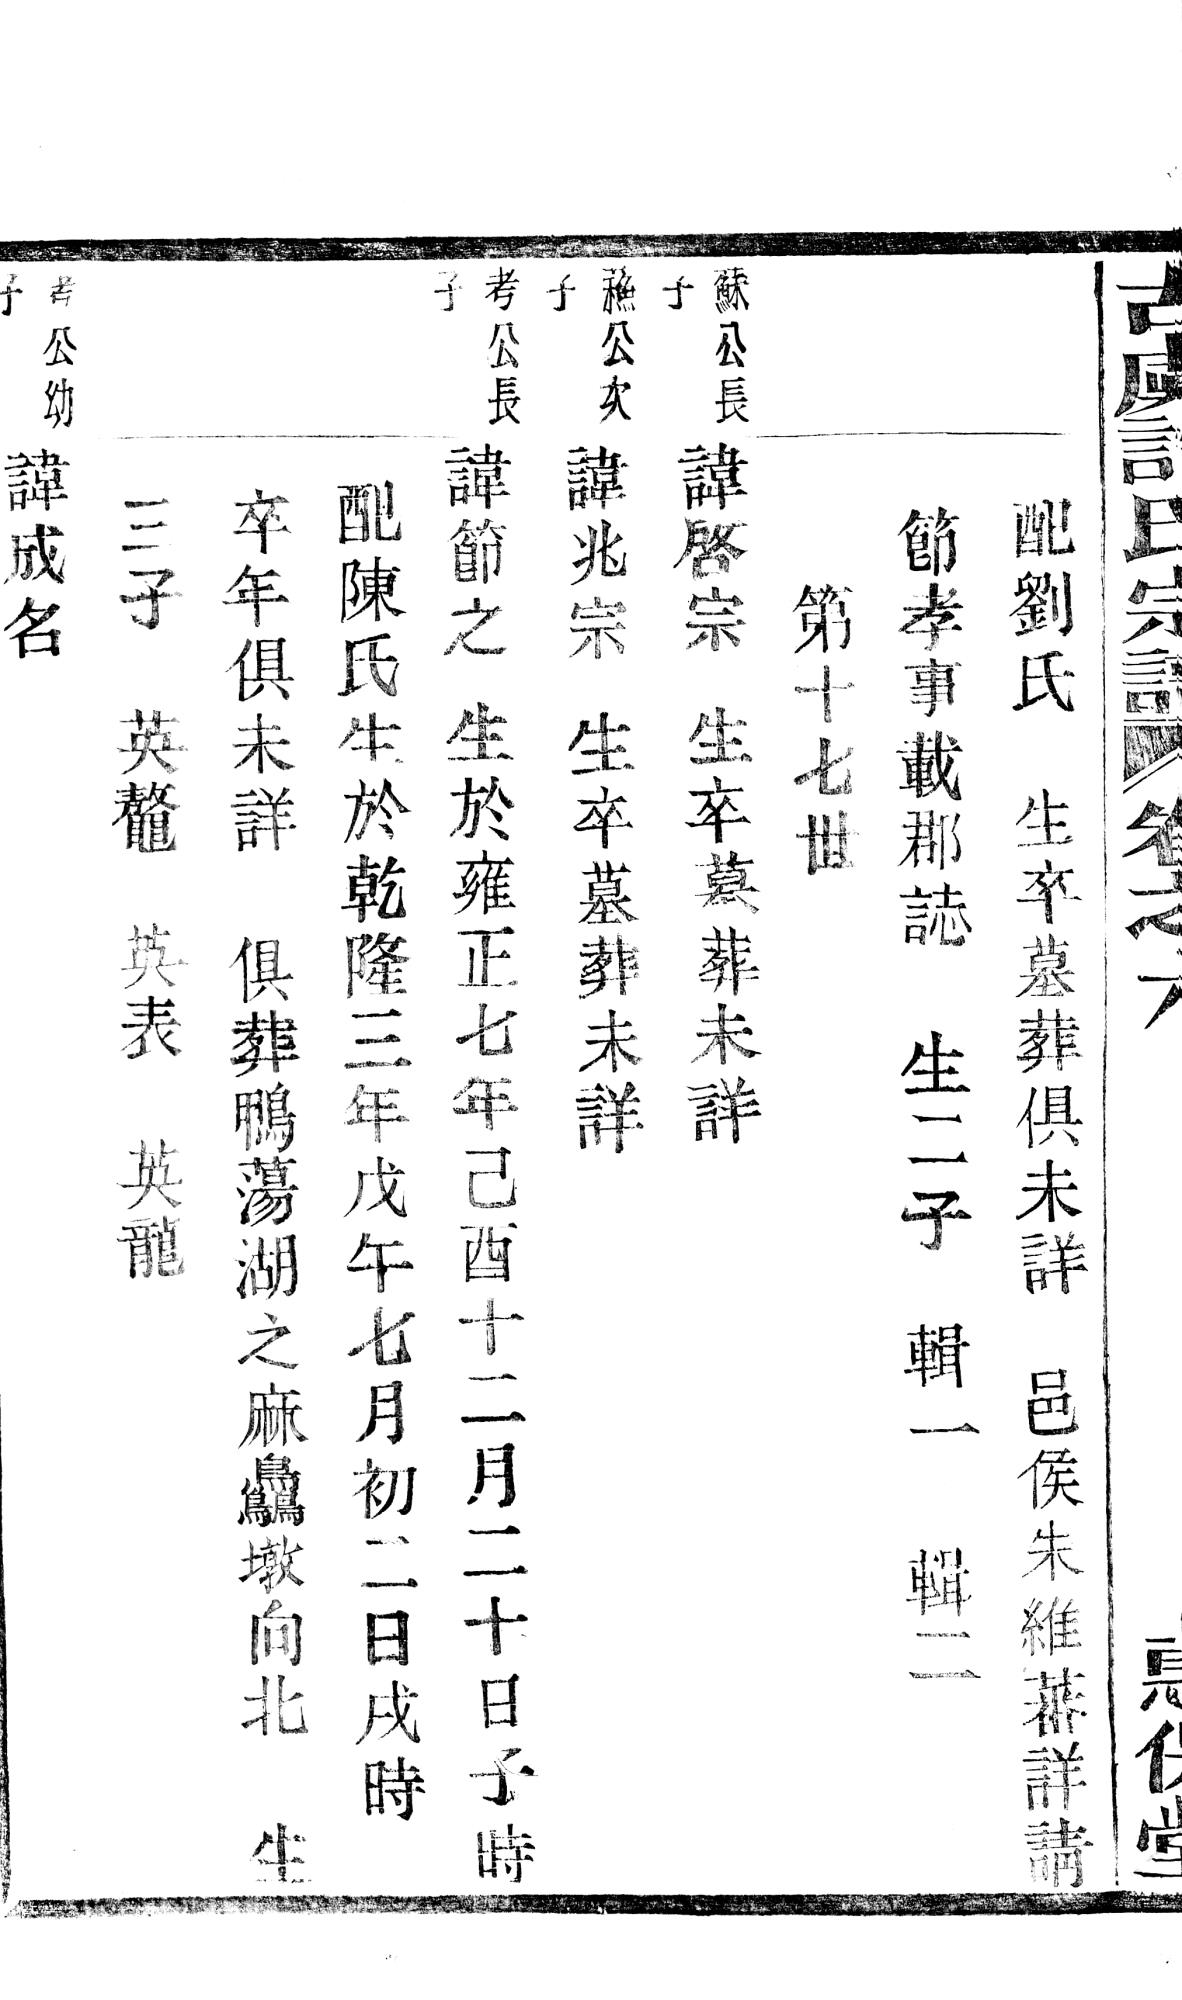 氏宗譜 卷之六
配劉氏 生卒墓葬俱未詳 邑侯朱維蕃詳請
節孝事載郡誌 生二子 輯一 輯二
第十七世
穌公長子 諱啓宗 生卒墓葬未詳
穌公次子 諱兆宗 生卒墓葬未詳
考公長子 諱節之 生於雍正七年己酉十二月二十日子時
配陳氏生於乾隆三年戊午七月初二日戌時
卒年俱未詳 俱葬鴨蕩湖之麻鱻墩向北 生
三子 英鼇 英表 英龍
考公幼子 諱成名